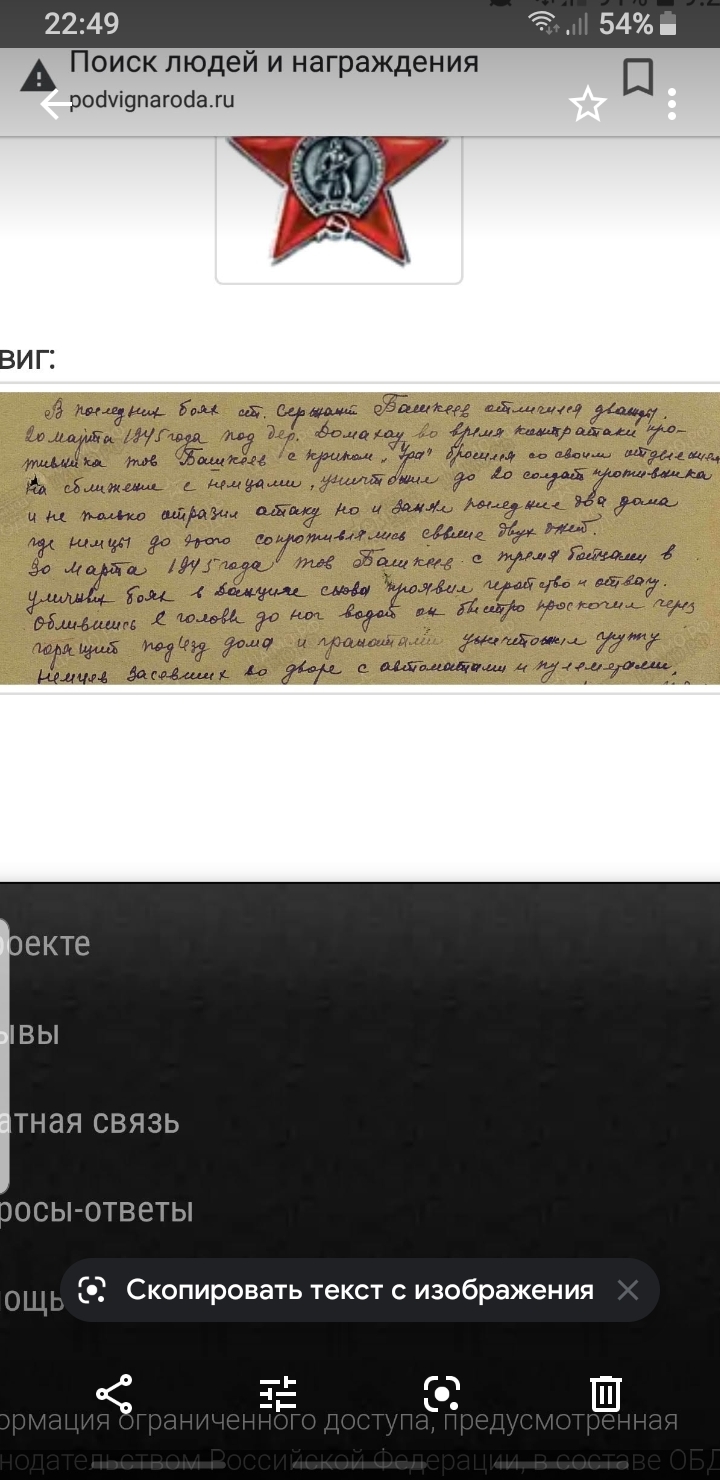 22:49
54%
Поиск людей и награждения
podvignaroda.ru
виг:
В последних боях ст. сержант Башкеев отличился дважды.
20 марта 1945 года под дер. Домахау во время контратаки про-
тивника тов Башкеев с криком „Ура" бросился со своим отделением
на сближение с немцами, уничтожил до 20 солдат противника
и не только отразил атаку но и занял последние два дома
где немцы до этого сопротивлялись свыше двух дней.
30 марта 1945 года тов Башкеев с тремя бойцами в
уличных боях в Данциге снова проявил геройство и отвагу.
Облившись с головы до ног водой он быстро проскочил через
горящий подъезд дома и гранатами уничтожил группу
немцев засевших во дворе с автоматами и пулеметами.
роекте
ывы
атная связь
росы-ответы
ощь
Скопировать текст с изображения
ормация ограниченного доступа, предусмотренная
нодательством Российской Федерации, в составе ОБД